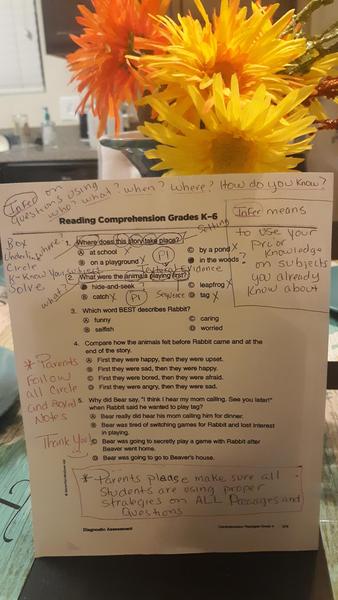 Infer on
questions using
who? what? when? where? How do you know?
Reading Comprehension Grades K–6
Infer means
to use your
Prior
Knowledge
on subjects
you already
Know about
Box
Underline
Circle
K-Know
Solve
where
what?
Setting
1. Where does this story take place?
A at school
B on a playground X
C by a pond X
D in the woods
P1
Textual Evidence
2. What were the animals playing first?
A hide-and-seek
B catch X
C leapfrog X
D tag X
P1
Sequence
3. Which word BEST describes Rabbit?
A funny
B selfish
C caring
D worried
4. Compare how the animals felt before Rabbit came and at the
end of the story.
A First they were happy, then they were upset.
B First they were sad, then they were happy.
C First they were bored, then they were afraid.
D First they were angry, then they were sad.
* Parents
Follow
all Circle
and Boxed
Notes
Thank You!
5. Why did Bear say, "I think I hear my mom calling. See you later!"
when Rabbit said he wanted to play tag?
A Bear really did hear his mom calling him for dinner.
B Bear was tired of switching games for Rabbit and lost interest
in playing.
C Bear was going to secretly play a game with Rabbit after
Beaver went home.
D Bear was going to go to Beaver's house.
* Parents please make sure all
Students are using proper
strategies on ALL Passages and
Questions
Diagnostic Assessment